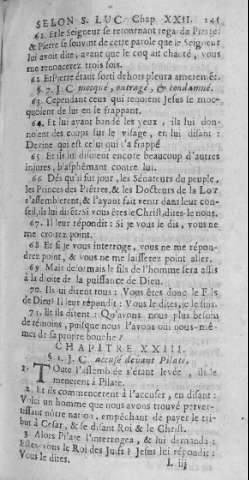 SELON S. LUC Chap. XXII. 245
61. Et le Seigneur se retournant regarda Pierre:
& Pierre se souvint de cette parole que le Seigneur
lui avoit dite, avant que le coq ait chanté, vous
me renoncerez trois fois.
62. Et Pierre étant sorti dehors pleura amerement.
§. 7. J. C. mocqué, outragé, & condamné.
63. Cependant ceux qui tenoient Jesus se moc-
quoient de lui en le frappant.
64. Et lui ayant bandé les yeux, ils lui don-
noient des coups sur le visage, en lui disant:
Devine qui est ce lui qui t'a frappé.
65. Et ils lui disoient encore beaucoup d'autres
injures, blasphêmant contre lui.
66. Dès qu'il fut jour, les Sénateurs du peuple,
les Princes des Prêtres, & les Docteurs de la Loy
s'assemblerent, & l'ayant fait venir dans leur con-
seil, ils lui dirent: Si vous êtes le Christ, dites-le nous.
67. Il leur répondit: Si je vous le dis, vous ne
me croirez point.
68. Et si je vous interroge, vous ne me répon-
drez point, & vous ne me laisserez point aller.
69. Mais desormais le fils de l'homme sera assis
à la droite de la puissance de Dieu.
70. Ils lui dirent tous: Vous êtes donc le Fils
de Dieu? Il leur répondit: Vous le dites, je le suis.
71. Et ils dirent: Qu'avons nous plus besoin
de témoins, puisque nous l'avons oui nous-mê-
mes de sa propre bouche?
CHAPITRE XXIII.
§. 1. J. C. accusé devant Pilate.
1. Toute l'assemblée s'étant levée, ils le
menerent à Pilate.
2. Et ils commencerent à l'accuser, en disant:
Voici un homme que nous avons trouvé perver-
tissant nôtre nation, empêchant de payer le tri-
but à Cesar, & se disant Roi & le Christ.
3. Alors Pilate l'interrogea, & lui demanda:
Etes-vous le Roi des Juifs? Jesus lui répondit:
Vous le dites.
L iij